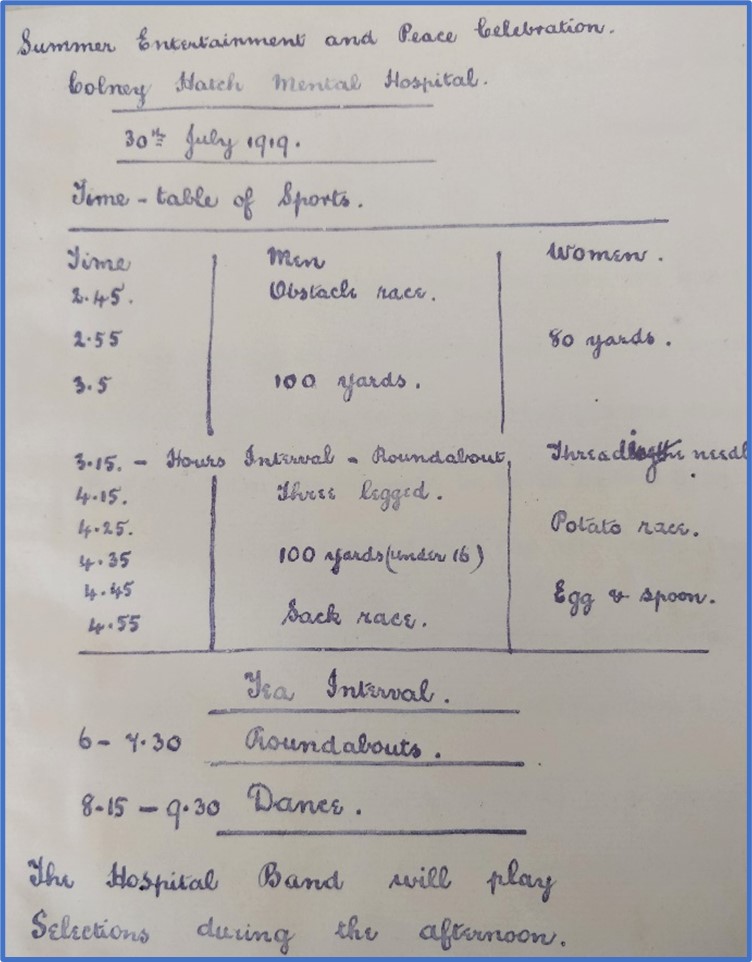 Summer Entertainment and Peace Celebration.
Colney Hatch Mental Hospital.
30th July 1919.
Time-table of Sports.
Time Men Women.
2.45. Obstacle race.
2.55 80 yards.
3.5 100 yards.
3.15. - Hours Interval - Roundabout, Threading the needl
4.15. Three legged.
4.25. Potato race.
4.35 100 yards (under 16)
4.45 Egg & spoon.
4.55 Sack race.
Tea Interval.
6 - 7.30 Roundabouts.
8.15 - 9.30 Dance.
The Hospital Band will play
Selections during the afternoon.